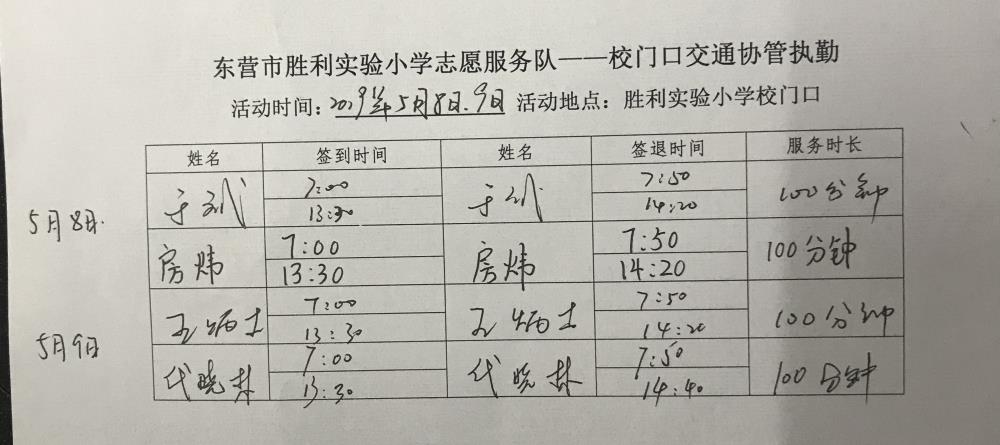 东营市胜利实验小学志愿服务队——校门口交通协管执勤
活动时间：2019年5月8日.9日 活动地点：胜利实验小学校门口
姓名 签到时间 姓名 签退时间 服务时长
5月8日.
7:00 7:50
13:30 14:20
100分钟
房炜 7:00 房炜 7:50 100分钟
13:30 14:20
5月9日
王炳士 7:00 王炳士 7:50 100分钟
13:30 14:20
代晓林 7:00 代晓林 7:50 100分钟
13:30 14:40